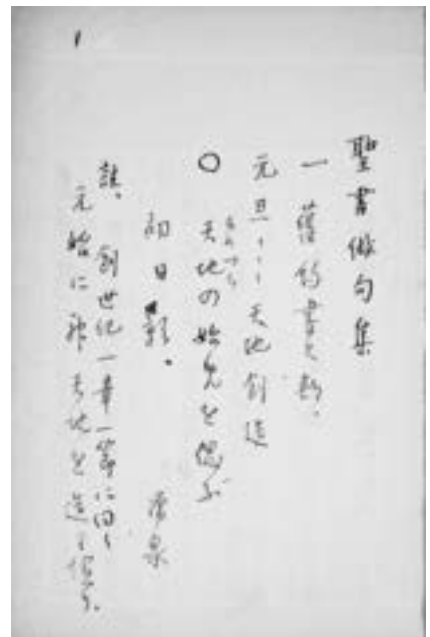 1
聖書俳句集
一 舊約書之部、
元旦・・・天地創造
○ 天地の始先を偲ぶ
初日影。
註、創世記一章一節に曰く
元始に神天地を造り給う。